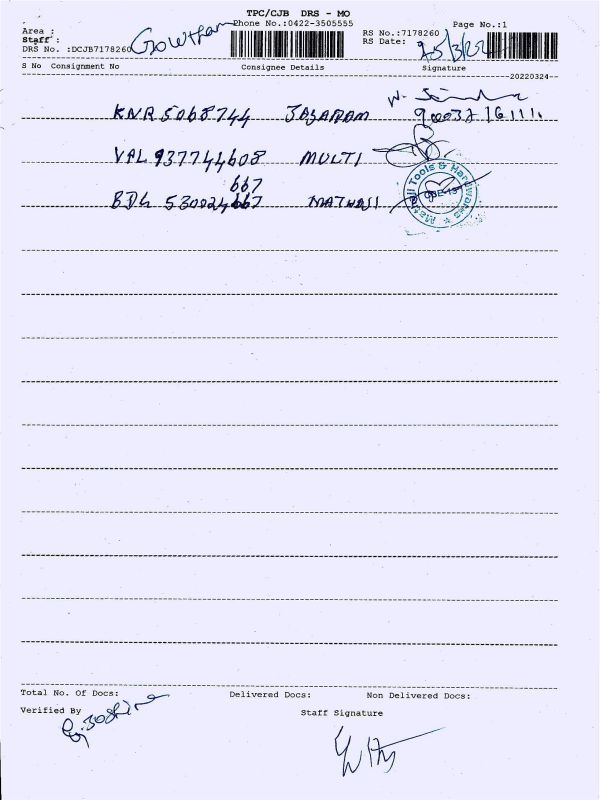 TPC/CJB DRS - MO
Phone No.:0422-3505555
Page No.:1
Area :
Staff : Gowtham
DRS No. :DCJB7178260
RS No.:7178260
RS Date: 25/3/22
S No Consignment No Consignee Details Signature
20220324
KNR 5068744 JAYARAM
VAL 937744608 MULTI
667
BDG 530024667
Tools & Hardwares
CBE-
Total No. Of Docs: Delivered Docs: Non Delivered Docs:
Verified By
Staff Signature